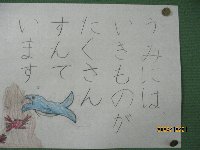 うみには
いきものが
たくさん
すんで
います